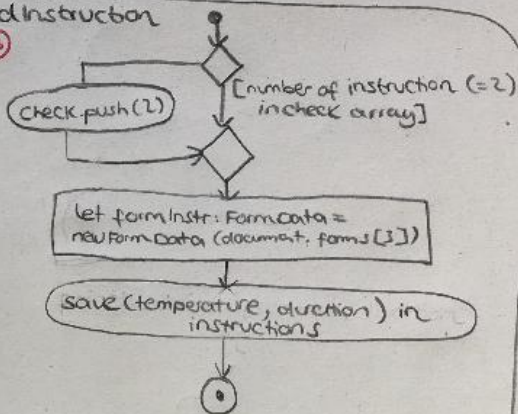 dInstruction
[number of instruction (=2)
in check array]
check.push(2)
let formInstr: FormData =
new FormData (document. forms[3])
save(temperature, duration) in
instructions